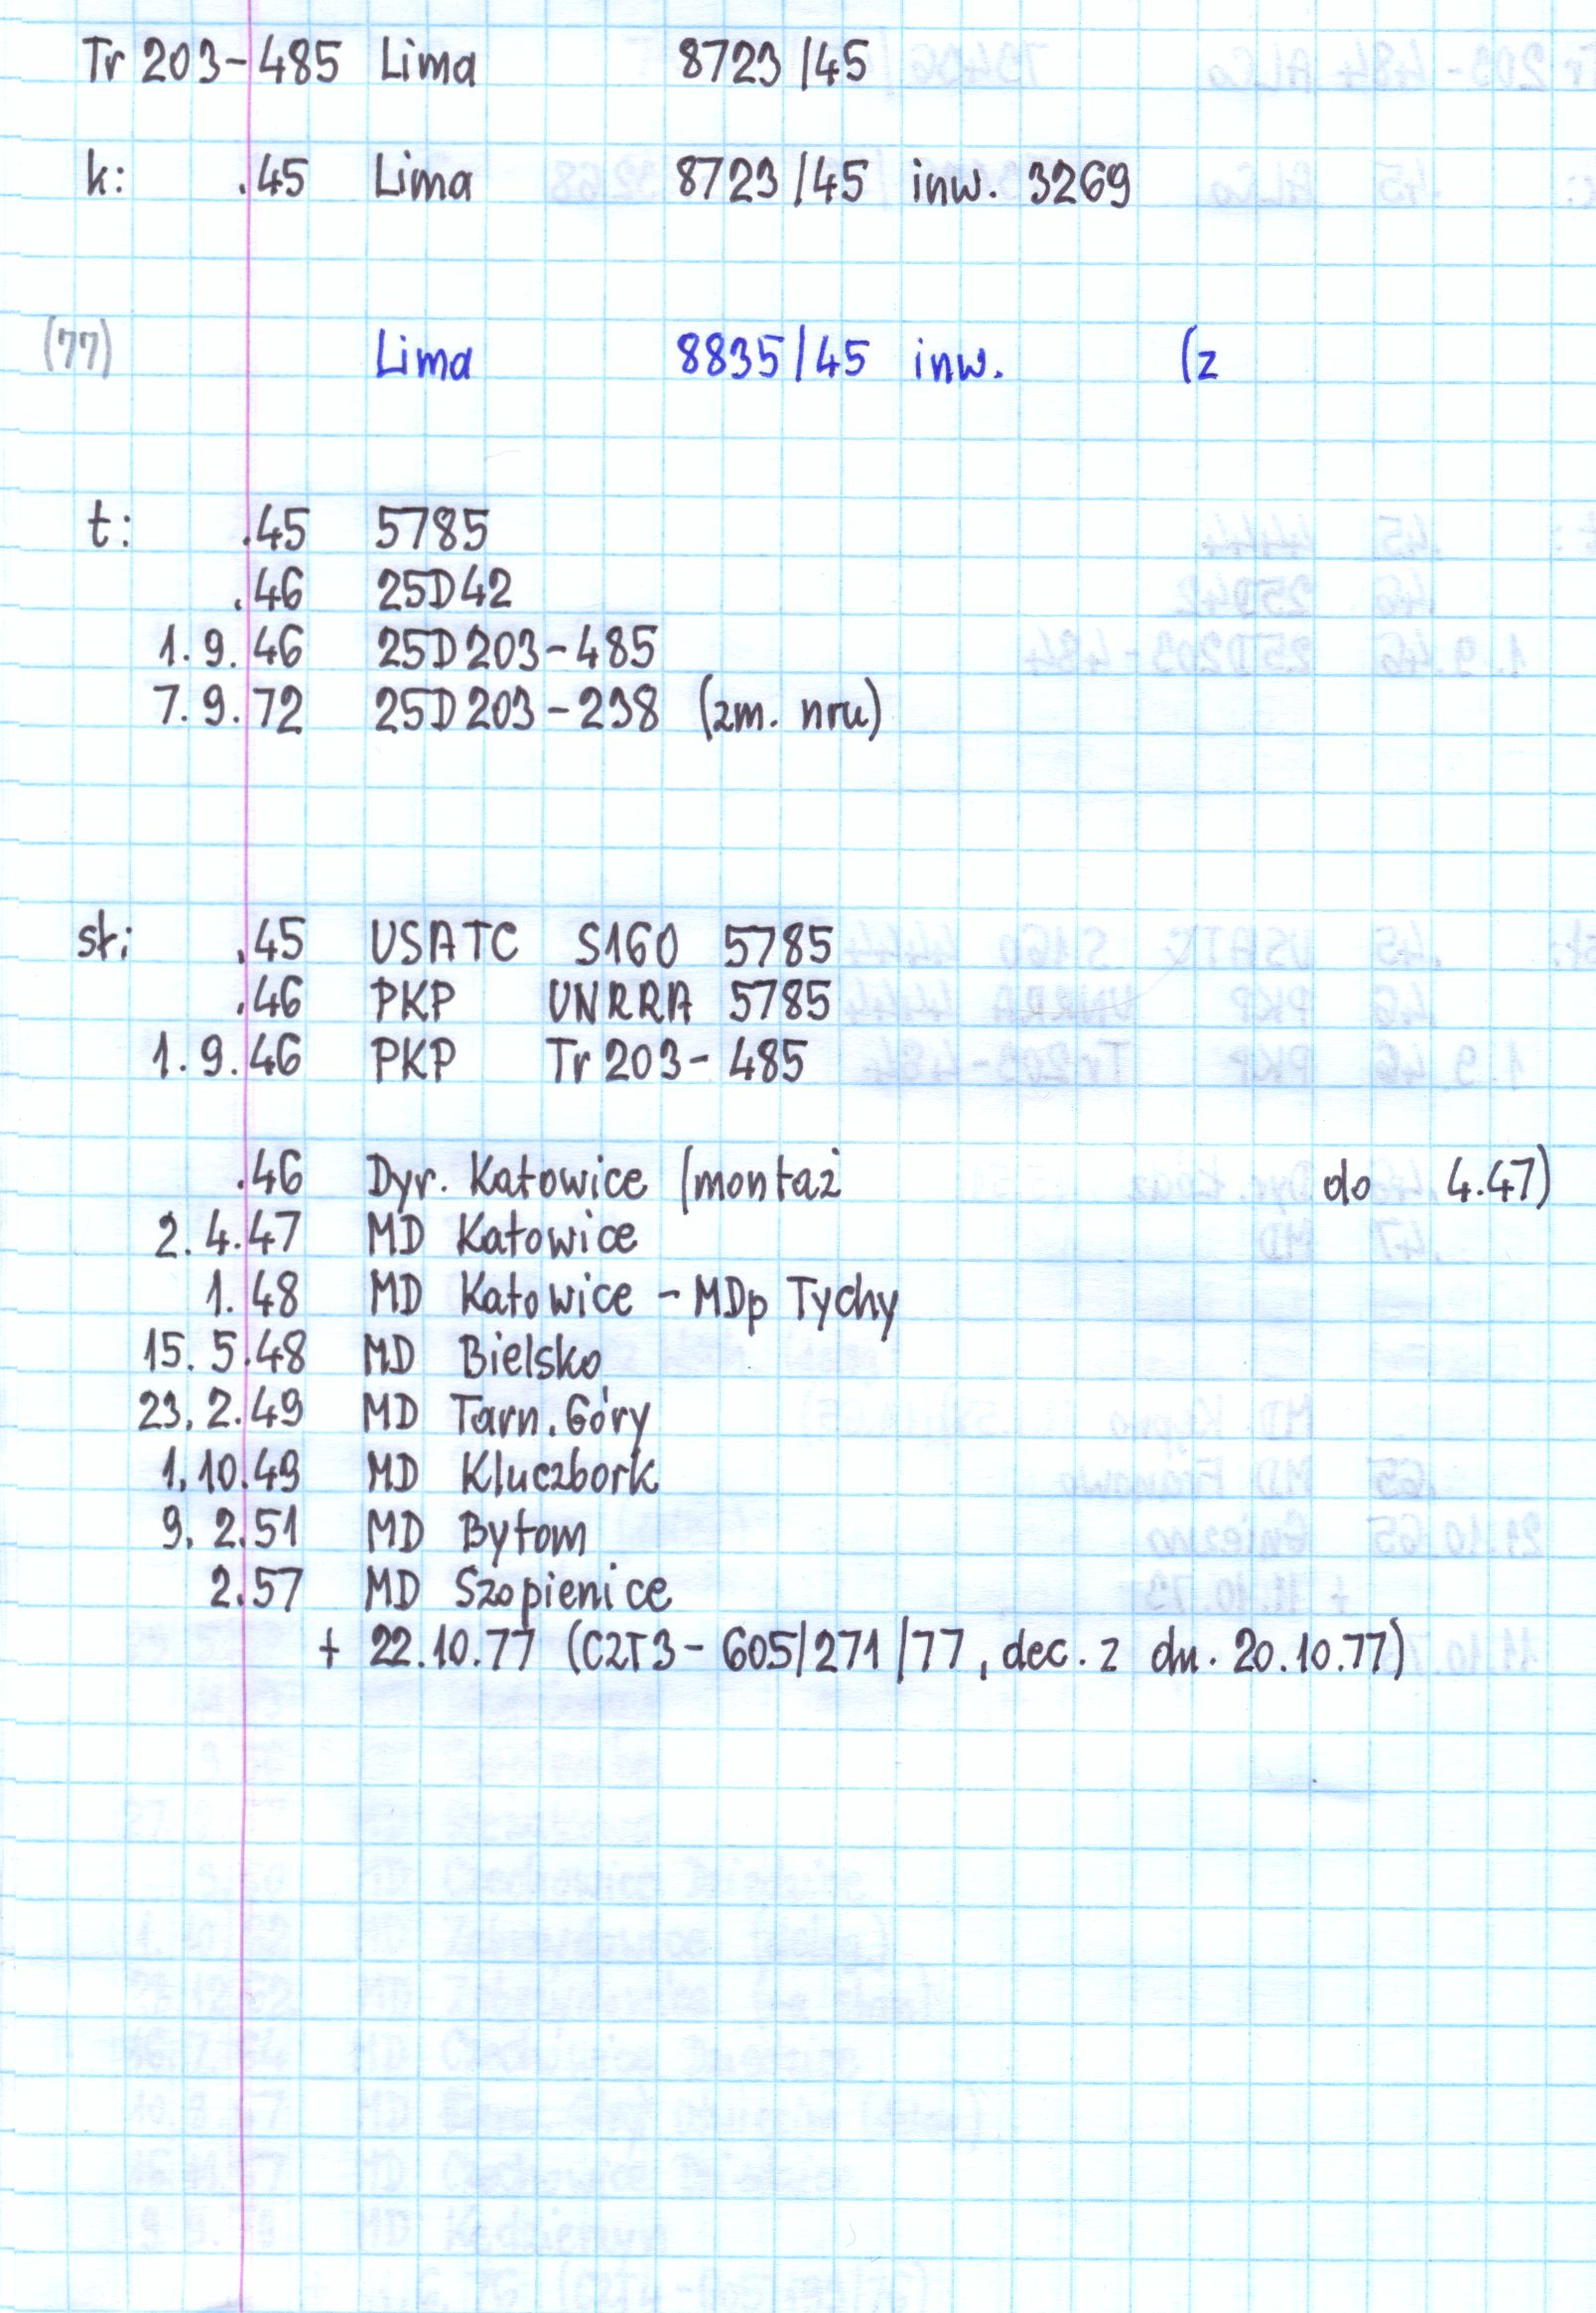 Tr 203-485 Lima 8723/45
k: .45 Lima 8723/45 inw. 3269
(77) Lima 8835/45 inw. (z
t: .45 5785
.46 25D42
1.9.46 25D203-485
7.9.72 25D203-238 (zm. nru)
sł: .45 USATC S160 5785
.46 PKP UNRRA 5785
1.9.46 PKP Tr 203-485
.46 Dyr. Katowice (montaż do 4.47)
2.4.47 MD Katowice
1.48 MD Katowice - MDp Tychy
15.5.48 MD Bielsko
23.2.49 MD Tarn. Góry
1.10.49 MD Kluczbork
9.2.51 MD Bytom
2.57 MD Szopienice
+ 22.10.77 (CZT3-605/271/77, dec. z dn. 20.10.77)